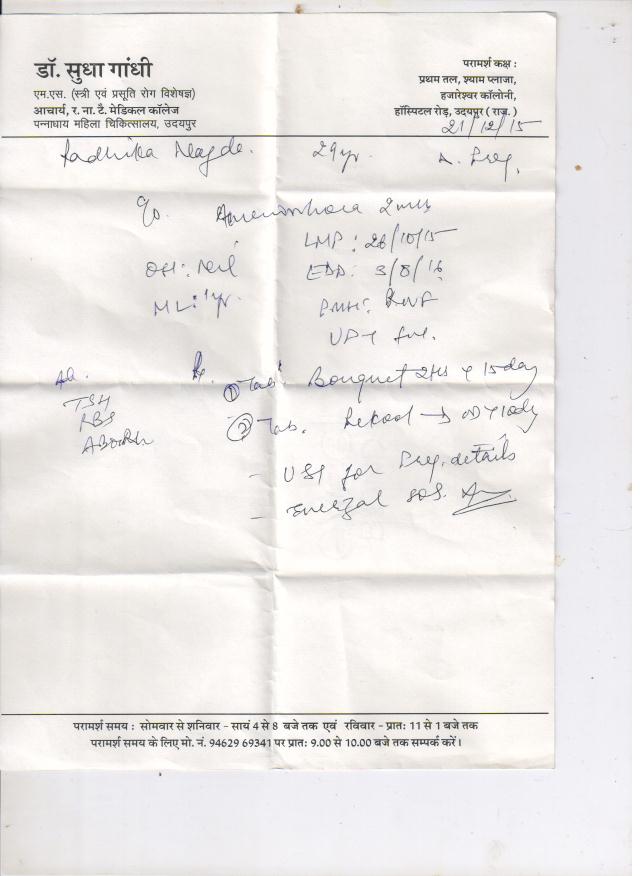 डॉ. सुधा गांधी
एम.एस. (स्त्री एवं प्रसूति रोग विशेषज्ञ)
आचार्य, र. ना. टै. मेडिकल कॉलेज
पन्नाधाय महिला चिकित्सालय, उदयपुर
परामर्श कक्ष :
प्रथम तल, श्याम प्लाजा,
हजारेश्वर कॉलोनी,
हॉस्पिटल रोड़, उदयपुर ( राज.)
21/12/15
Radhika 29yr.
c/o. Amenorrhoea 2 mths
LMP : 26/10/15
OH: Nil EDD: 3/8/16
ML: 1yr.
UPT
Rx. ① Tab. Bouquet 15day
TSH
RBS
ABORh
② Tab. Rekool → OD
- USG for Preg. details
- sos.
परामर्श समय : सोमवार से शनिवार - सायं 4 से 8 बजे तक एवं रविवार - प्रात: 11 से 1 बजे तक
परामर्श समय के लिए मो. नं. 94629 69341 पर प्रात: 9.00 से 10.00 बजे तक सम्पर्क करें।